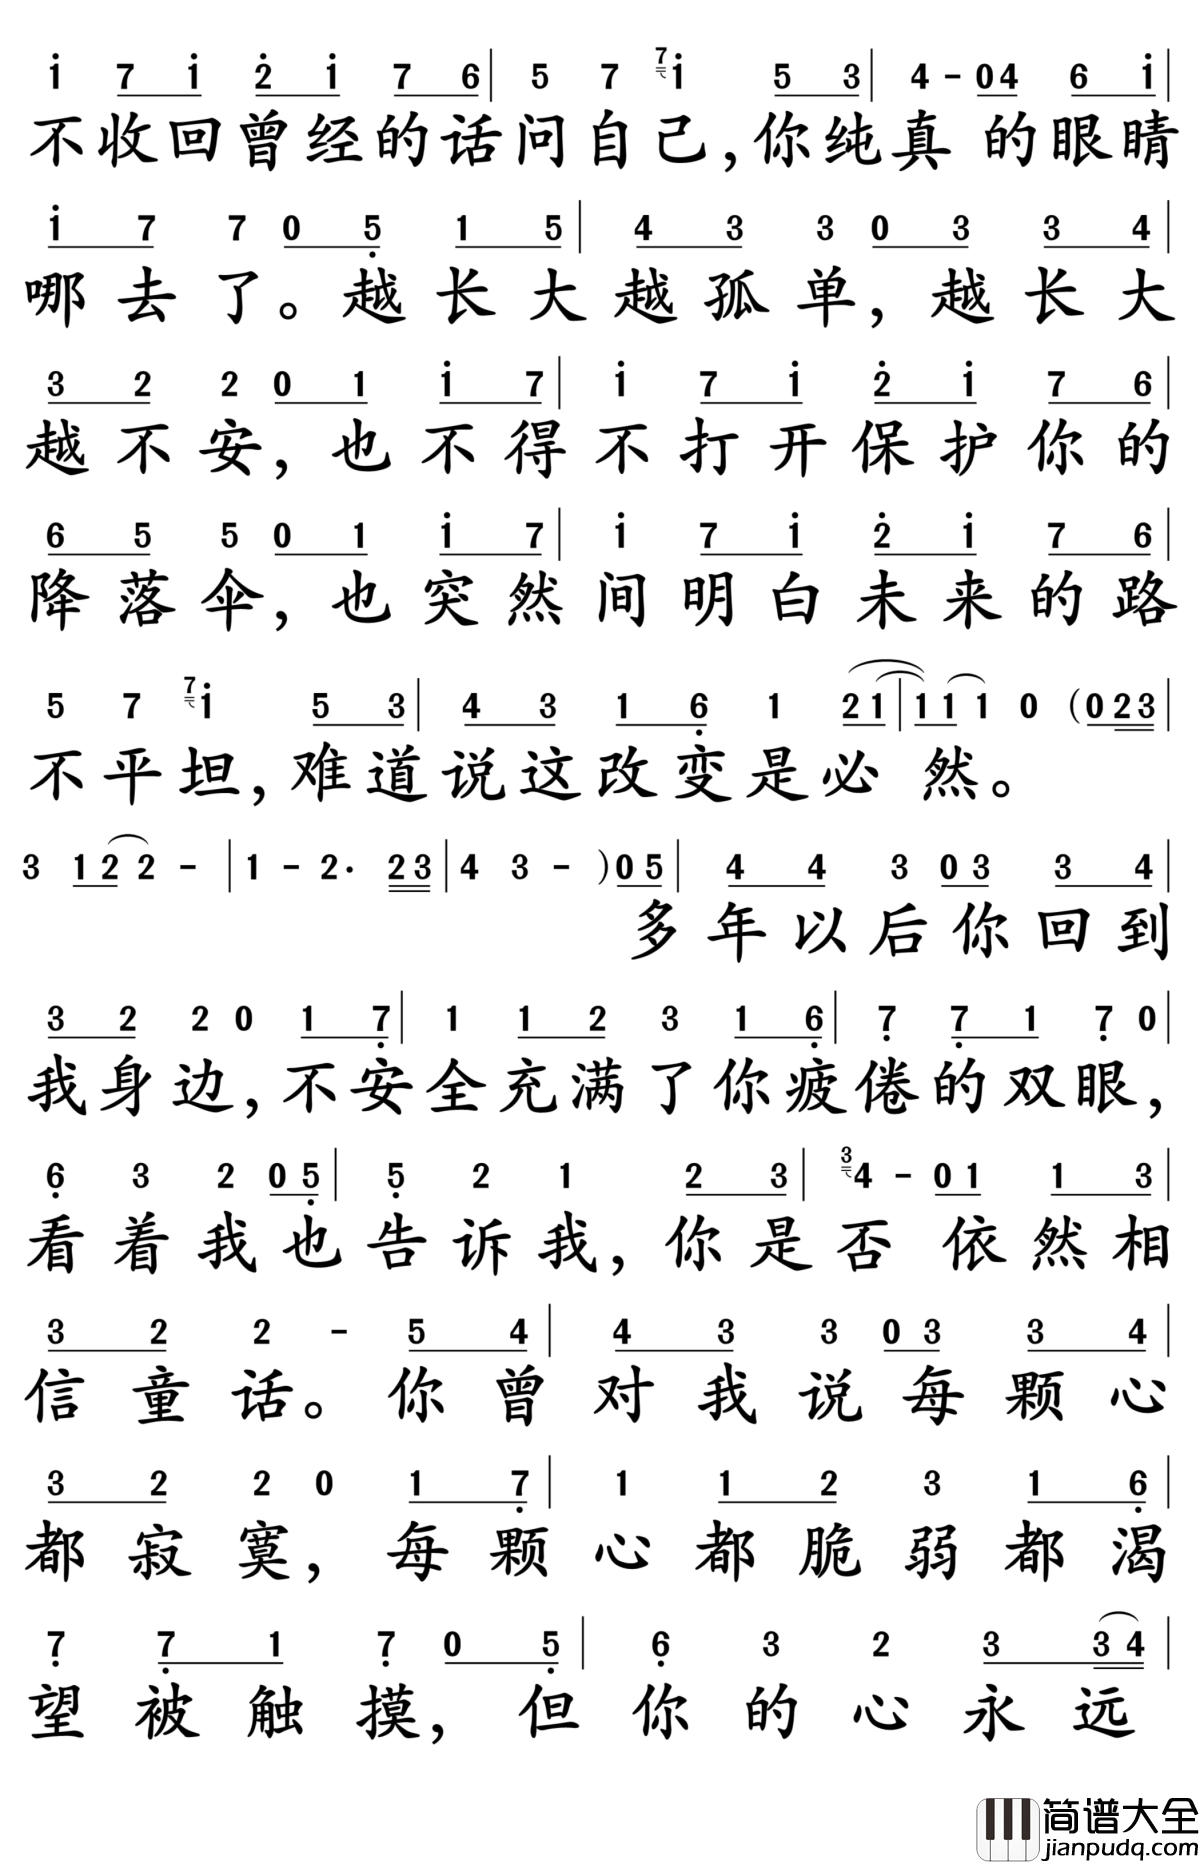 i 7 i 2̇ i 7 6 | 5 7 7i 5 3 | 4 - 0 4 6 i |
不收回曾经的话问自己,你纯真 的眼睛
i 7 7 0 5̣ 1 5 | 4 3 3 0 3 3 4 |
哪去了。越长大越孤单,越长大
3 2 2 0 1 i 7 | i 7 i 2̇ i 7 6 |
越不安,也不得不打开保护你的
6 5 5 0 1 i 7 | i 7 i 2̇ i 7 6 |
降落伞,也突然间明白未来的路
5 7 7i 5 3 | 4 3 1 6̣ 1 2 1 | 1 1 1 0 (0 2 3 |
不平坦,难道说这改变是必 然。
3 1 2 2 - | 1 - 2· 2 3 | 4 3 - ) 0 5 | 4 4 3 0 3 3 4 |
多年以后你回到
3 2 2 0 1 7̣ | 1 1 2 3 1 6̣ | 7̣ 7̣ 1 7̣ 0 |
我身边,不安全充满了你疲倦的双眼,
6̣ 3 2 0 5̣ | 5̣ 2 1 2 3 | 34 - 0 1 1 3 |
看着我也告诉我,你是否 依然相
3 2 2 - 5 4 | 4 3 3 0 3 3 4 |
信童话。你曾对我说每颗心
3 2 2 0 1 7̣ | 1 1 2 3 1 6̣ |
都寂寞,每颗心都脆弱都渴
7̣ 7̣ 1 7̣ 0 5̣ | 6̣ 3 2 3 3 4 |
望被触摸,但你的心永远
简谱大全
jianpudq.com